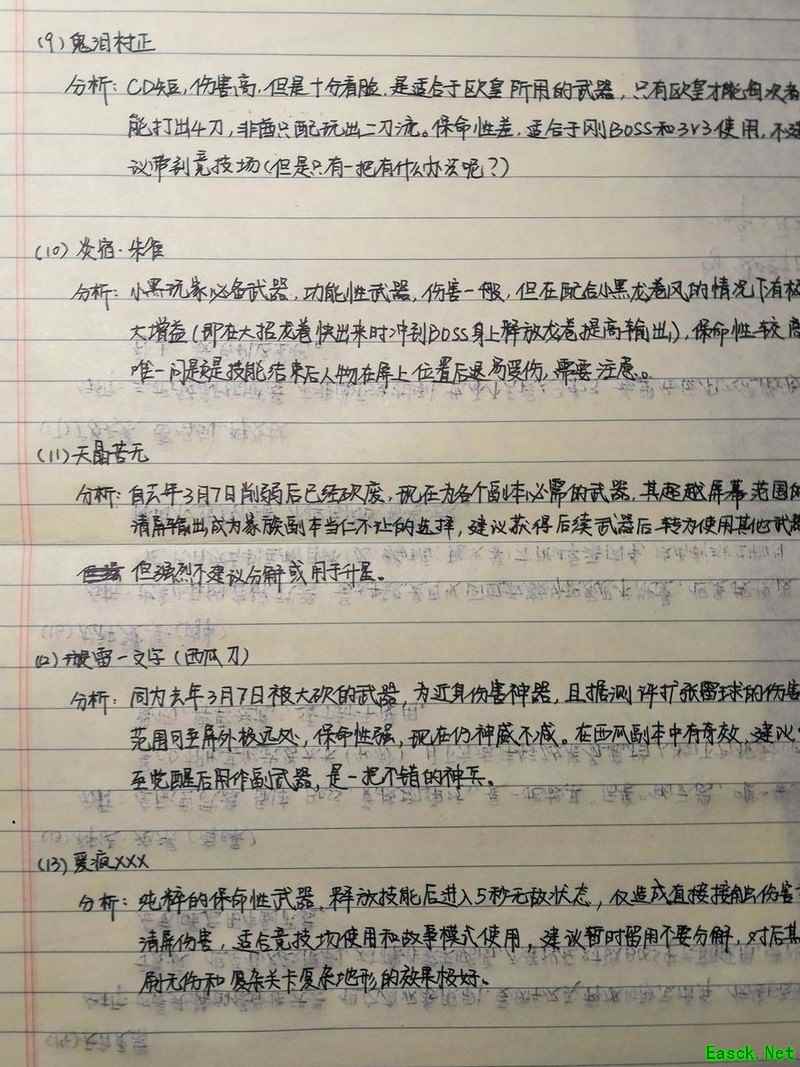 (9) 鬼泪村正
分析：CD短，伤害高，但是十分看脸，是适合于欧皇所用的武器，只有欧皇才能每次都
能打出4刀，非酋只配玩出二刀流。保命性差，适合于刚BOSS和3V3使用，不建
议带到竞技场（但是只有一把有什么办法呢？）
(10) 炎宿·朱雀
分析：小黑玩家必备武器，功能性武器，伤害一般，但在配合小黑龙卷风的情况下有极
大增益（即在大招龙卷快出来时冲到BOSS身上释放龙卷提高输出），保命性较高
唯一问题是技能结束后人物在屏上位置后退易受伤，需要注意。
(11) 天晶苦无
分析：自去年3月7日削弱后已经砍废，现在为各个副本必需的武器，其超越屏幕范围的
清屏输出成为家族副本当仁不让的选择，建议获得后续武器后转为使用其他武器
但强烈不建议分解或用于升星。
(12) 漩雷一文字（西瓜刀）
分析：同为去年3月7日被大砍的武器，为近身伤害神器，且据测评扩张雷球的伤害
范围可至屏外极远处，保命性强，现在仍神威不减。在西瓜副本中有奇效，建议
至觉醒后用作副武器，是一把不错的神兵。
(13) 爱疯XXX
分析：纯粹的保命性武器，释放技能后进入5秒无敌状态，仅造成直接接触伤害
清屏伤害，适合竞技场使用和故事模式使用，建议暂时留用不要分解，对后期
刷无伤和复杂关卡复杂地形的效果极好。
Easck.Net